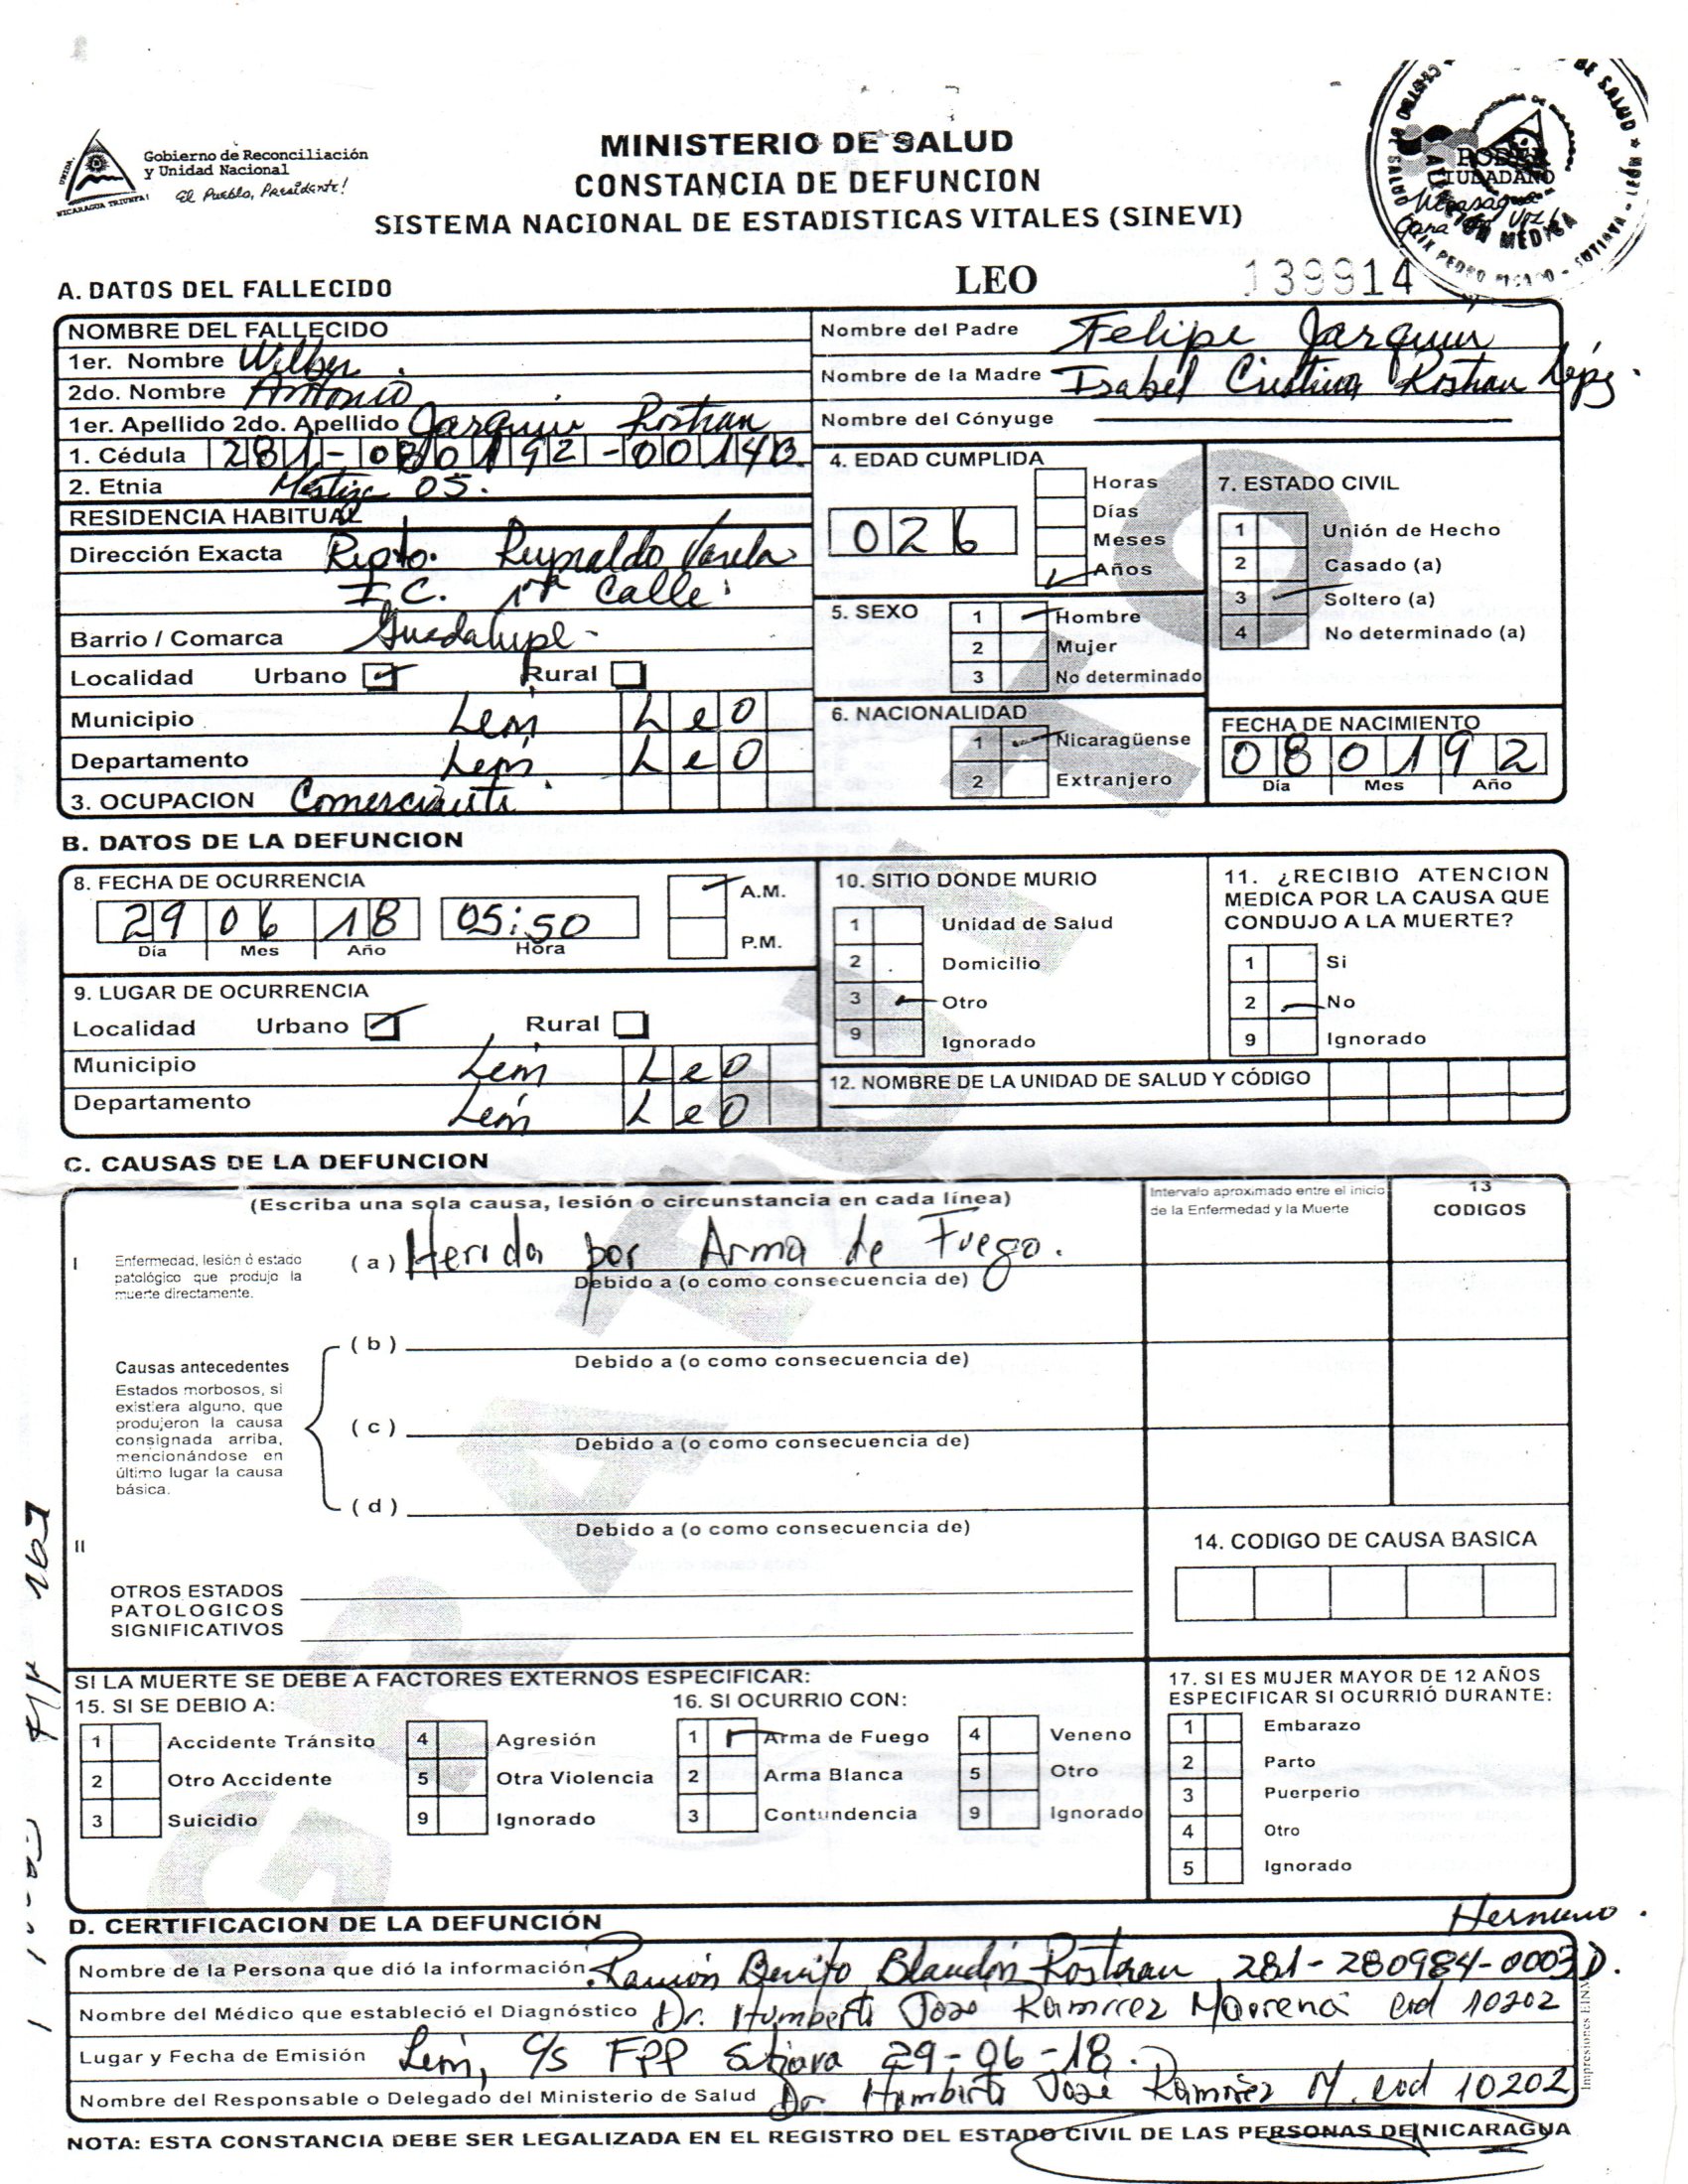 Gobierno de Reconciliación
y Unidad Nacional
El Pueblo, Presidente!
UNIDA,
NICARAGUA TRIUNFA!
MINISTERIO DE SALUD
CONSTANCIA DE DEFUNCION
SISTEMA NACIONAL DE ESTADISTICAS VITALES (SINEVI)
PODER
CIUDADANO
LEO 139914
A. DATOS DEL FALLECIDO
NOMBRE DEL FALLECIDO
1er. Nombre Wilber
2do. Nombre Antonio
1er. Apellido 2do. Apellido Jarquin Rostran
1. Cédula 281-080192-0014B
2. Etnia Mestiza 05.
RESIDENCIA HABITUAL
Dirección Exacta Repto. Reynaldo Varela
I.C. 1ra Calle
Barrio / Comarca Guadalupe
Localidad Urbano Rural
Municipio León LeO
Departamento León LeO
3. OCUPACION Comerciante
Nombre del Padre Felipe Jarquin
Nombre de la Madre Isabel Cristina Rostran López
Nombre del Cónyuge
4. EDAD CUMPLIDA
026
Horas
Días
Meses
Años
5. SEXO
1 Hombre
2 Mujer
3 No determinado
6. NACIONALIDAD
1 Nicaragüense
2 Extranjero
7. ESTADO CIVIL
1 Unión de Hecho
2 Casado (a)
3 Soltero (a)
4 No determinado (a)
FECHA DE NACIMIENTO
080192
Día Mes Año
B. DATOS DE LA DEFUNCION
8. FECHA DE OCURRENCIA
29 06 18 05:50
Día Mes Año Hora
A.M.
P.M.
9. LUGAR DE OCURRENCIA
Localidad Urbano Rural
Municipio León LeO
Departamento León LeO
10. SITIO DONDE MURIO
1 Unidad de Salud
2 Domicilio
3 Otro
9 Ignorado
11. ¿RECIBIO ATENCION
MEDICA POR LA CAUSA QUE
CONDUJO A LA MUERTE?
1 Si
2 No
9 Ignorado
12. NOMBRE DE LA UNIDAD DE SALUD Y CÓDIGO
C. CAUSAS DE LA DEFUNCION
(Escriba una sola causa, lesión o circunstancia en cada línea)
Intervalo aproximado entre el inicio
de la Enfermedad y la Muerte
13
CODIGOS
I Enfermedad, lesión ó estado
patológico que produjo la
muerte directamente.
(a) Herida por Arma de Fuego.
Debido a (o como consecuencia de)
(b)
Debido a (o como consecuencia de)
Causas antecedentes
Estados morbosos, si
existiera alguno, que
produjeron la causa
consignada arriba,
mencionándose en
último lugar la causa
básica.
(c)
Debido a (o como consecuencia de)
(d)
Debido a (o como consecuencia de)
II
OTROS ESTADOS
PATOLOGICOS
SIGNIFICATIVOS
14. CODIGO DE CAUSA BASICA
SI LA MUERTE SE DEBE A FACTORES EXTERNOS ESPECIFICAR:
15. SI SE DEBIO A:
1 Accidente Tránsito
2 Otro Accidente
3 Suicidio
4 Agresión
5 Otra Violencia
9 Ignorado
16. SI OCURRIO CON:
1 Arma de Fuego
2 Arma Blanca
3 Contundencia
4 Veneno
5 Otro
9 Ignorado
17. SI ES MUJER MAYOR DE 12 AÑOS
ESPECIFICAR SI OCURRIÓ DURANTE:
1 Embarazo
2 Parto
3 Puerperio
4 Otro
5 Ignorado
GRATUITO
D. CERTIFICACION DE LA DEFUNCIÓN
Hermano.
Nombre de la Persona que dió la información Ramón Benito Blandón Rostran 281-280984-0003D.
Nombre del Médico que estableció el Diagnóstico Dr. Humberto Jose Ramirez Mairena cod 10202
Lugar y Fecha de Emisión León, C/S FPP Sutiava 29-06-18.
Nombre del Responsable o Delegado del Ministerio de Salud Dr Humberto José Ramirez M. cod 10202
NOTA: ESTA CONSTANCIA DEBE SER LEGALIZADA EN EL REGISTRO DEL ESTADO CIVIL DE LAS PERSONAS DE NICARAGUA